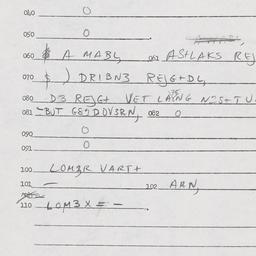 040 0
050 0
060 A MABL, 061 ASTLAKS REJ
070 ) DRIBN3 REJG+DL,
080 D3 REJG+ VET LAING
081 -BUT 082 0
090 0
091 0
100 LOM3R VART+
101 — 102 ARN,
110 LOM3X = -